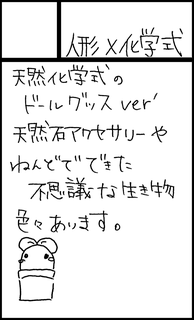 人形×化学式
天然化学式の
ドールグッズver'
天然石アクセサリーや
ねんどでできた
不思議な生き物
色々あります。